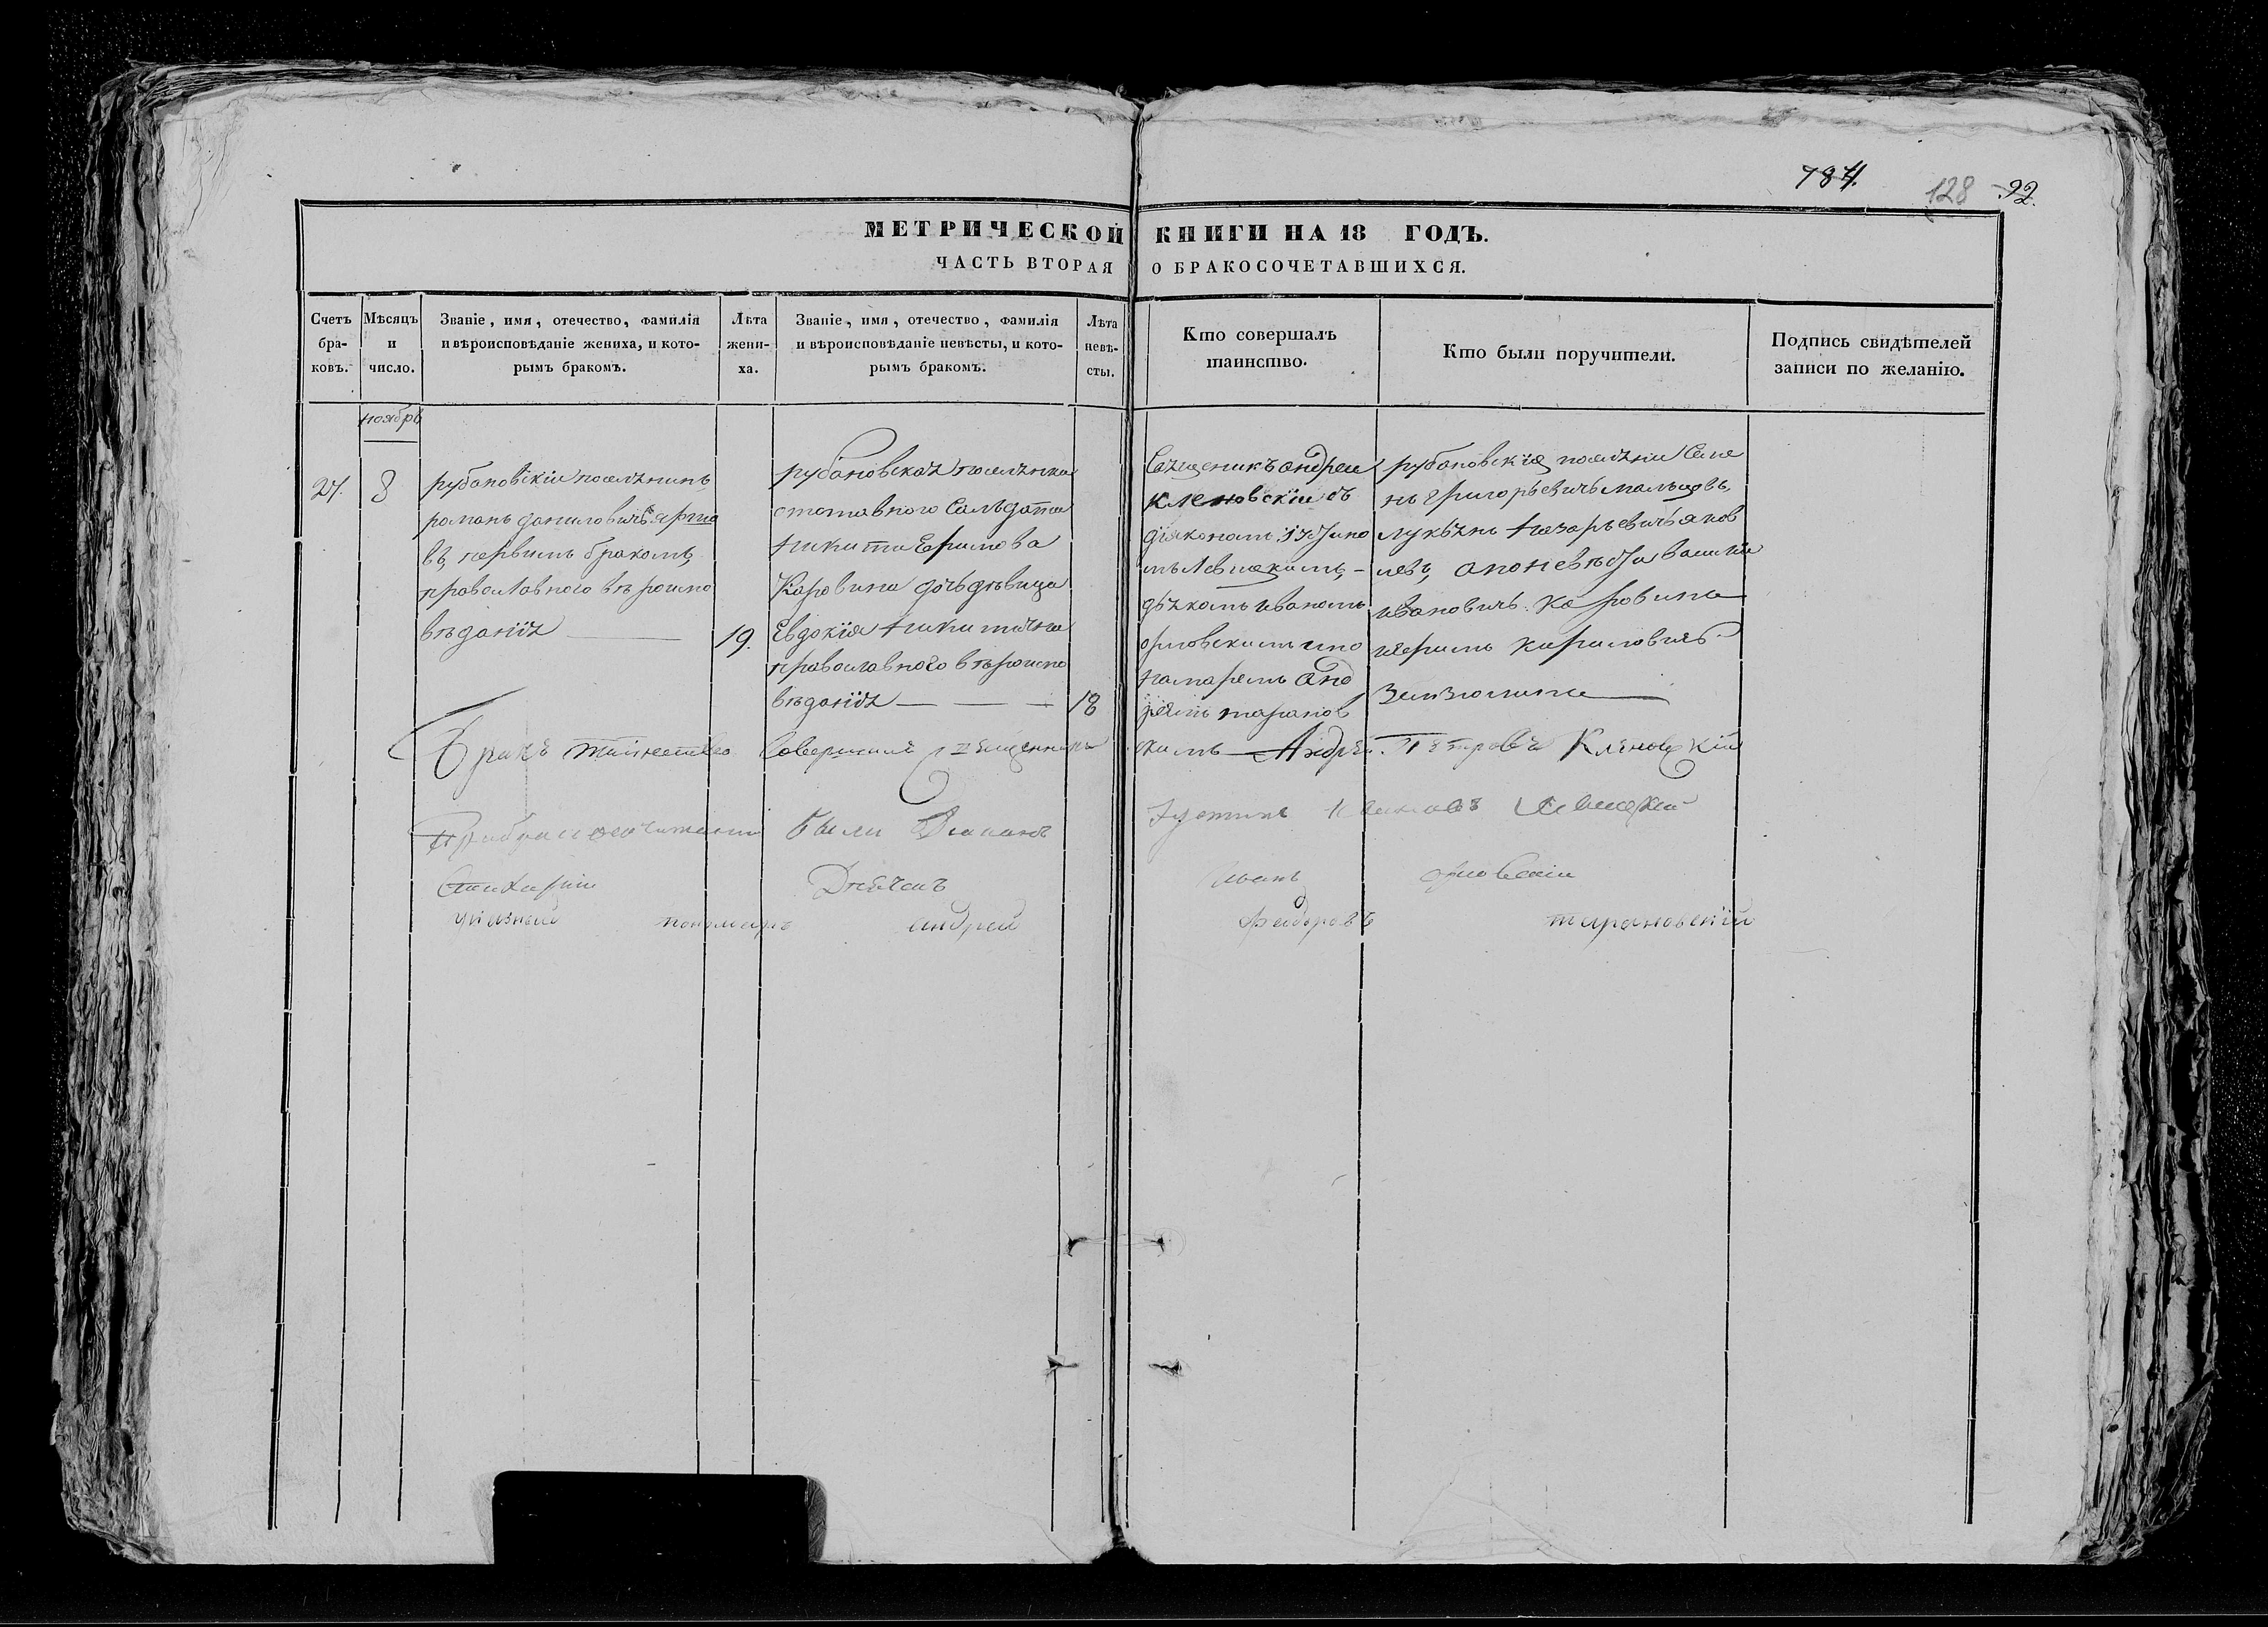 784.
128 92.
МЕТРИЧЕСКОЙ КНИГИ НА 18 ГОДЪ.
ЧАСТЬ ВТОРАЯ О БРАКОСОЧЕТАВШИХСЯ.
Счетъ бра-ковъ.
Мѣсяцъ и число.
Званіе, имя, отечество, фамилія
и вѣроисповѣданіе жениха, и кото-
рымъ бракомъ.
Лѣта
жени-
ха.
Званіе, имя, отечество, фамилія
и вѣроисповѣданіе невѣсты, и кото-
рымъ бракомъ.
Лѣта
невѣ-
сты.
Кто совершалъ
таинство.
Кто были поручители.
Подпись свидѣтелей
записи по желанію.
ноябрь
27.
8
рубановскіи поселѣнинъ
романъ даниловичъ
въ, первимъ бракомъ,
православного вѣроиспо
вѣданіѧ
19.
рубановскаѧ поселѣнка
отставного Салдата
никити Ефимова
Каровина дочь дѣвица
Евдокіѧ никитична
православного вѣроиспо
вѣданіѧ
18
Свѧщеникъ андреи
Кленовскіи съ
діякономъ іустино
мъ Левицкимъ,
дѣѧкомъ иваномъ
орловскимъ и по
намаремъ анд
реемъ таранов
скимъ
рубановскіѧ поселѣни Семе
нъ григорьевичъ мальцовъ,
лукіѧнъ назарьевичъ яков
левъ, а по невѣсти василіи
ивановичъ Каровинъ
иефимъ кириловичъ
Бракъ таинство Совершилъ Священникъ Андрей Петровъ Кленовскій
При бракосочитаніи были Диаконъ Іустинъ Левицкий
Стихарніи Дьячекъ Иванъ орловскіи
указный пономарь андрей Федоровъ тарановскій